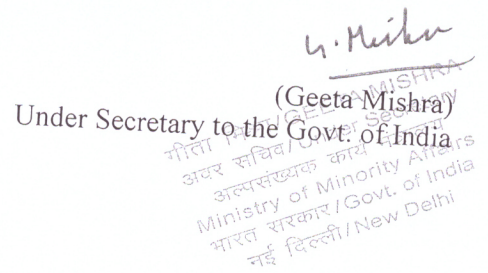 G. Mishra
(Geeta Mishra)
Under Secretary to the Govt. of India
गीता मिश्रा/GEETA MISHRA
अवर सचिव/Under Secretary
अल्पसंख्यक कार्य मंत्रालय
Ministry of Minority Affairs
भारत सरकार/Govt. of India
नई दिल्ली/New Delhi